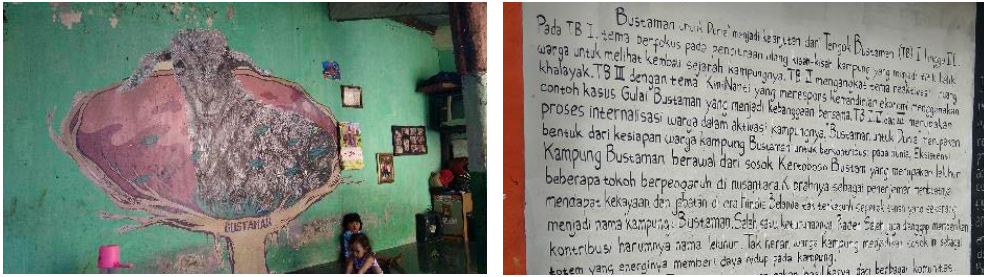 BUSTAMAN
Bustaman untuk Dunia menjadi kelanjutan dari Tengok Bustaman (TB) I hingga III.
Pada TB I, tema berfokus pada penceritaan ulang kisah-kisah kampung yang menjadi titik balik
warga untuk melihat kembali sejarah kampungnya. TB II mengangkat tema reaktivasi ruang
khalayak. TB III dengan tema Kini Nanti yang merespons kemandirian ekonomi menggunakan
contoh kasus Gulai Bustaman yang menjadi kebanggaan bersama. merupakan
proses internalisasi warga dalam aktivasi kampungnya. Bustaman untuk Dunia merupakan
bentuk dari kesiapan warga kampung Bustaman untuk berkontribusi pada dunia. Eksistensi
Kampung Bustaman berawal dari sosok Kertoboso Bustam yang merupakan leluhur
beberapa tokoh berpengaruh di nusantara. Kiprahnya sebagai penerjemah membuatnya
mendapat kekayaan dan jabatan di era Hindia Belanda dan yang sekarang
menjadi nama kampung: Bustaman. Salah satu keturunannya, Raden Saleh juga dianggap memberikan
kontribusi harumnya nama leluhur. Tak heran warga kampung menjadikan sosok ini sebagai
totem yang energinya memberi daya hidup pada kampung.
karya dari berbagai komunitas